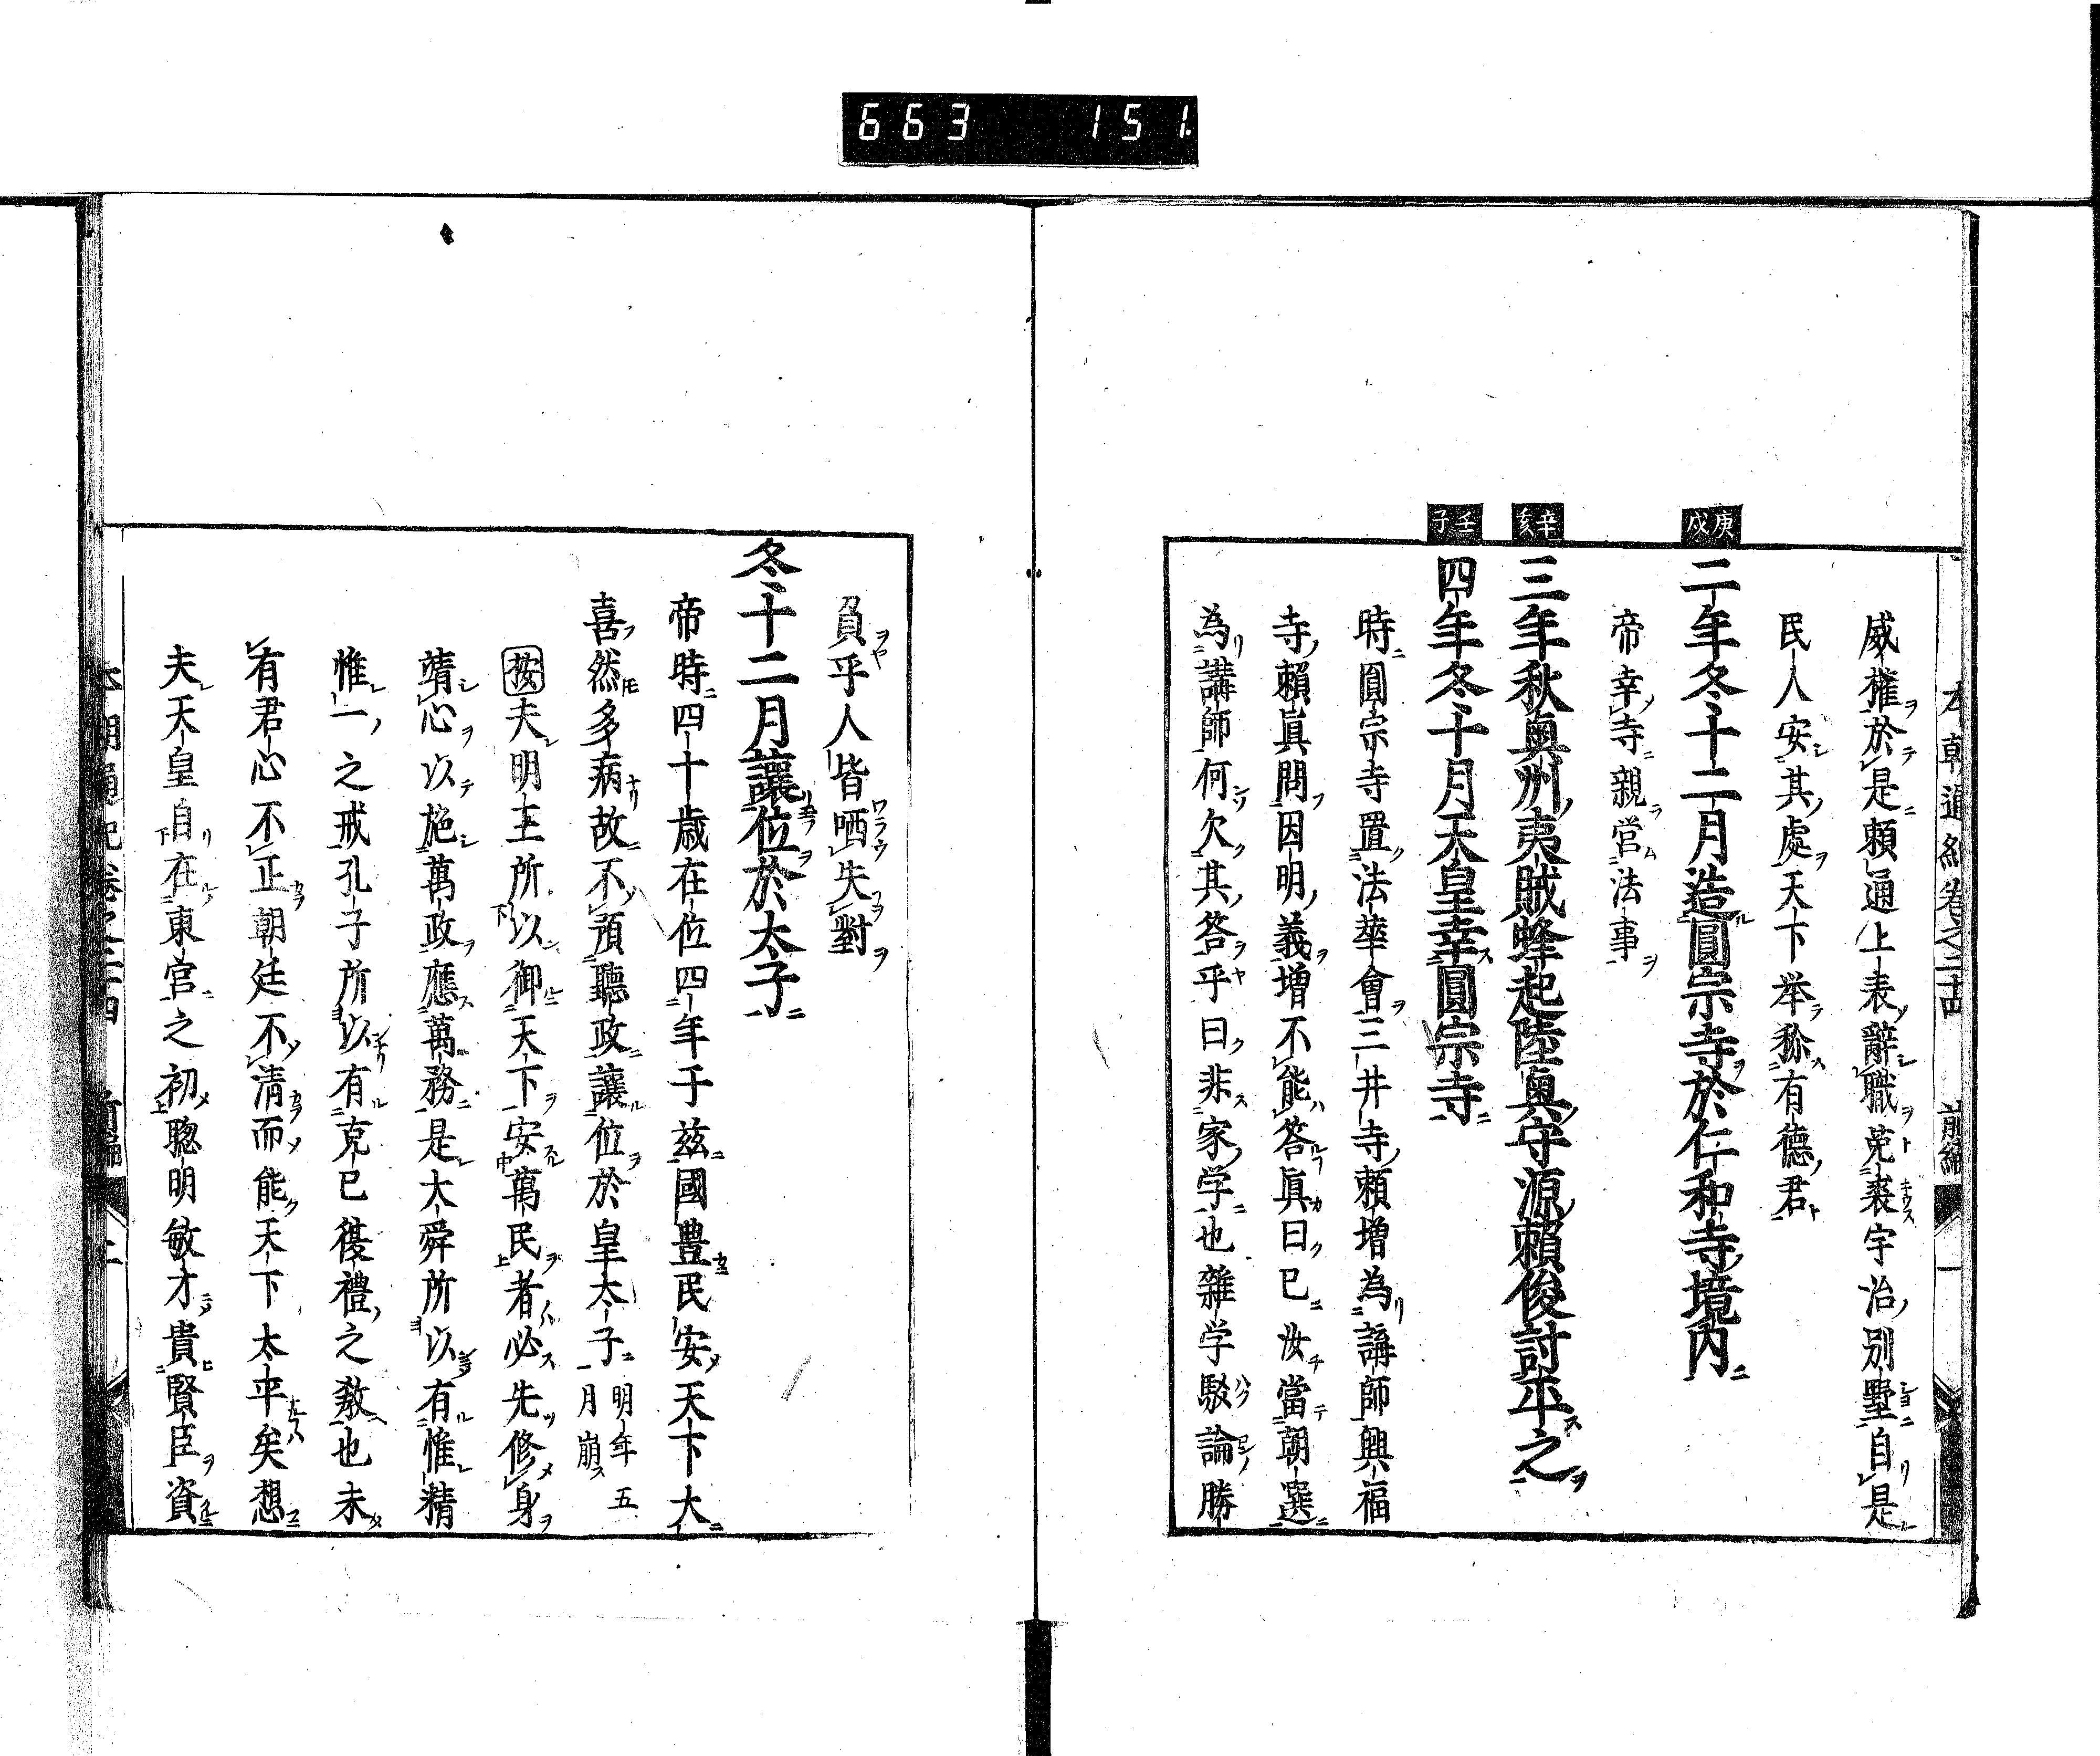 663 151
本朝通紀卷之二十四 前編
威權於是賴通上表辭職莵裘宇治別墅自是
民人安其處天下举称有德君
庚戌
二年冬十二月造圓宗寺於仁和寺境內
帝幸寺親営法事
辛亥
三年秋奧州夷賊蜂起陸奧守源賴俊討平之
壬子
四年冬十月天皇幸圓宗寺
時圓宗寺置法華會三井寺賴增為講師興福
寺賴眞問因明義增不能答眞曰已汝當朝選
為講師何欠其答乎曰非家学也雜学駁論勝
負乎人皆哂失對
冬十二月讓位於太子
帝時四十歲在位四年于茲國豊民安天下大
喜然多病故不預聽政讓位於皇太子明年五月崩
按夫明主所以御天下安萬民者必先修身
靖心以施萬政應萬務是大舜所以有惟精
惟一之戒孔子所以有克已復禮之敎也未
有君心不正朝廷不清而能天下太平矣想
夫天皇自在東宮之初聰明敏才貴賢臣資
本朝通紀卷之二十四 前編